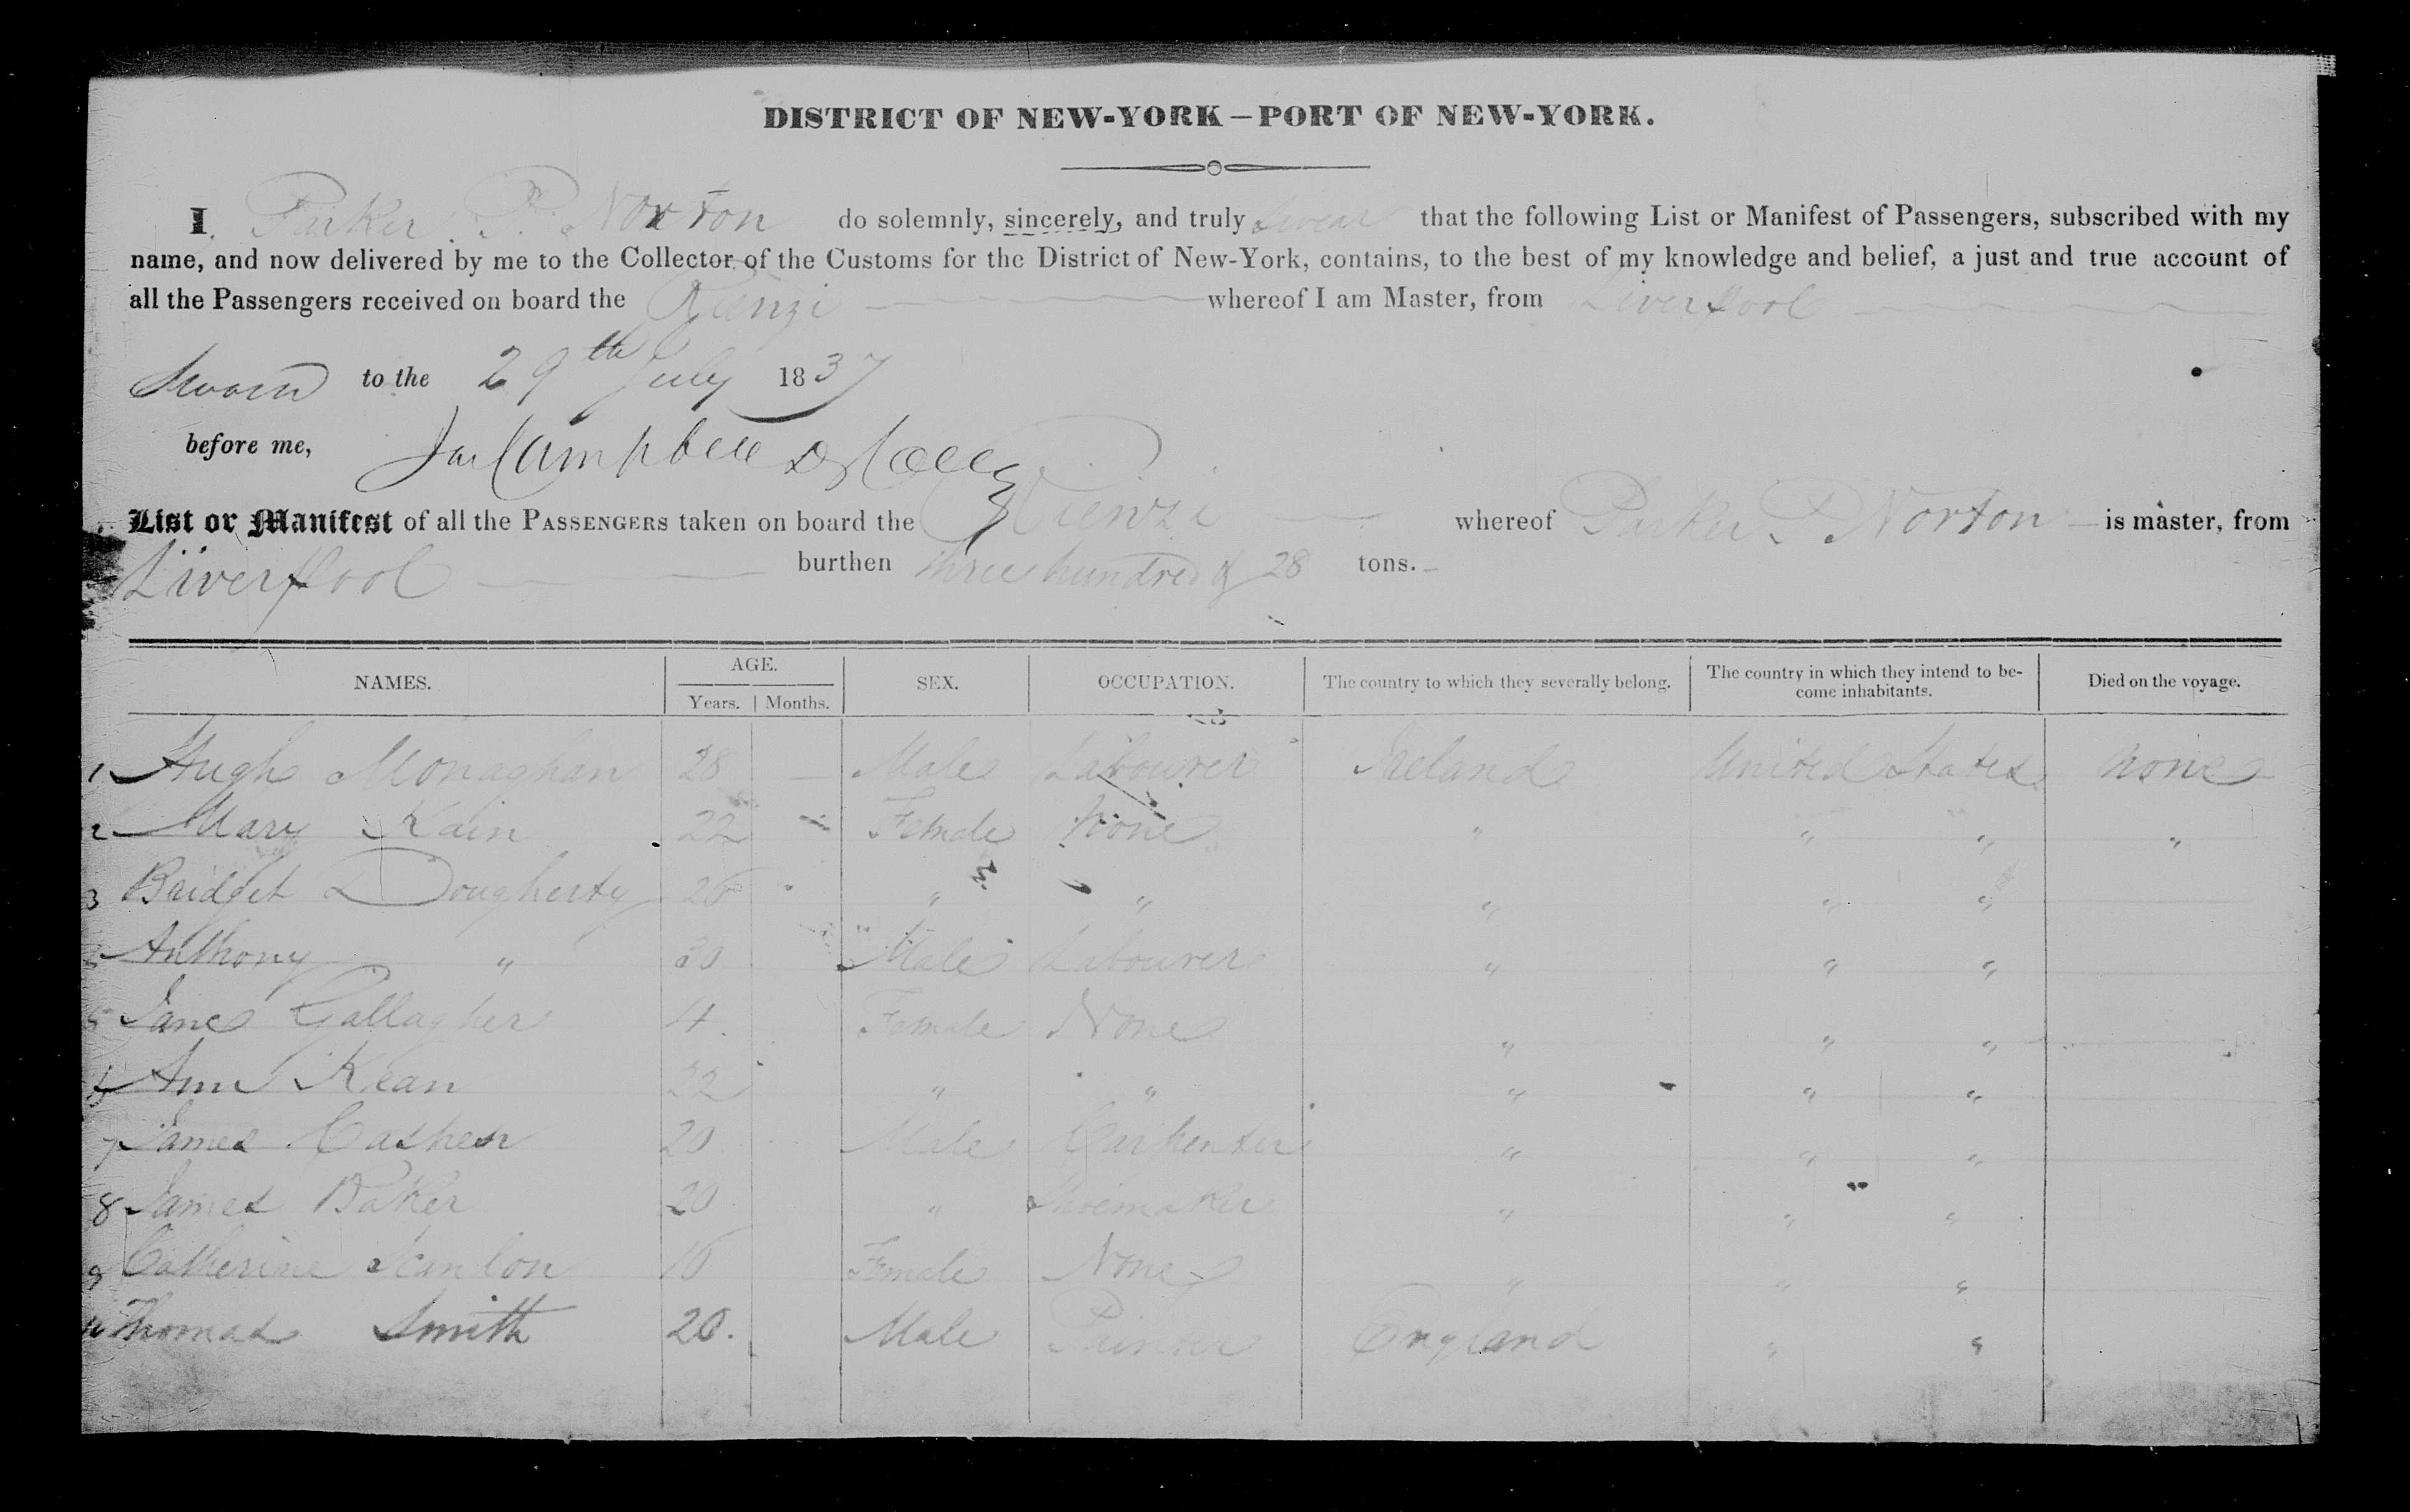 DISTRICT OF NEW-YORK—PORT OF NEW-YORK.
I, Parker P. Norton do solemnly, sincerely, and truly swear that the following List or Manifest of Passengers, subscribed with my
name, and now delivered by me to the Collector of the Customs for the District of New-York, contains, to the best of my knowledge and belief, a just and true account of
all the Passengers received on board the Rienzi whereof I am Master, from Liverpool
Sworn to the 29th July 1837
before me, Campbell
List or Manifest of all the PASSENGERS taken on board the Rienzi whereof Parker P Norton is master, from
Liverpool burthen three hundred & 28 tons.
NAMES. AGE. Years. Months. SEX. OCCUPATION. The country to which they severally belong. The country in which they intend to become inhabitants. Died on the voyage.
1 Hugh Monaghan 28 — Male Labourer Ireland United States None
2 Mary Kain 22 Female None " " " "
3 Bridget Dougherty " " " " "
Anthony " 30 Male Labourer " " "
5 Jane Gallagher 4 Female None " " "
Ann Kean 22 " " " " "
7 James Cashen 20 Male Carpenter " " "
8 James Baker 20 " Shoemaker " " "
9 Catherine Scanlon Female None " " "
10 Thomas Smith 20. Male England " "